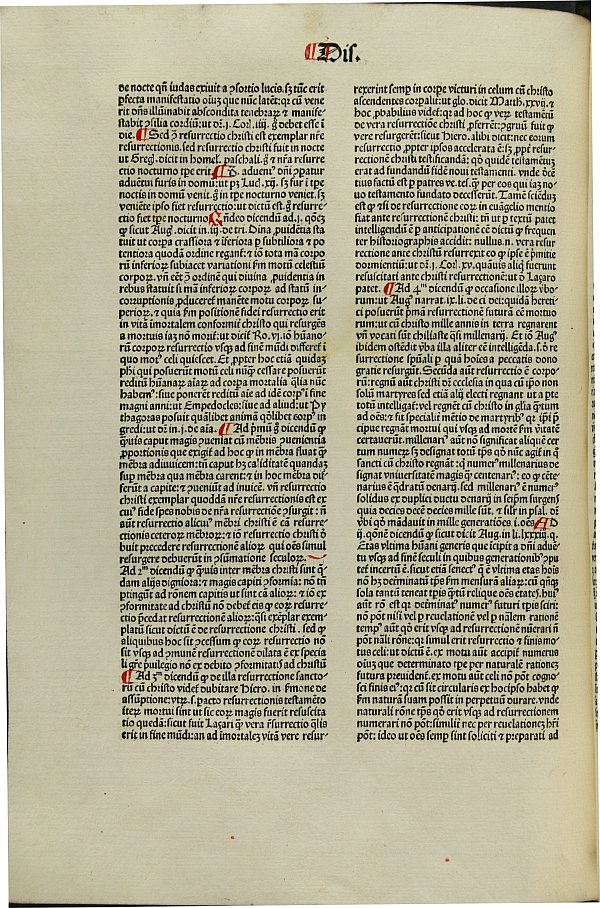 ¶Dis.
de nocte qñ iudas exiuit a ɔsortio lucis. sꝫ tūc erit
ꝑfecta manifestatio oīuꝫ que nūc latēt: qꝛ cū vene
rit dñs illūnabit abscondita tenebraꝝ ⁊ manife⸗
stabit ɔsilia cordiū: ut dꝛ .j. Coꝛ. iiij. g̊ debet esse ī
die. ¶ Sed ɔͣ resurrectio christi est exemplar nr̄e
resurrectionis. sed resurrectio christi fuit in nocte
ut Greg. dicit in homel. paschali. g̊ ⁊ nr̄a resurre
ctio nocturno tꝑe erit. ¶ It̄. aduent⁹ dn̄i ɔꝑatur
aduētui furis in domū: ut pꝫ Luc. xij. sꝫ fur ī tꝑe
noctis in domū venit. g̊ in tꝑe nocturno veniet. sꝫ
veniēte ipso fiet resurrectio: ut dictū est. g̊ resurre⸗
ctio fiet tꝑe nocturno. Rn̄deo dicendū ad .j. qōeꝫ
ꝙ sicut Aug⁹. dicit in .iij. de tri. Diuina ꝓuidētia sta
tuit ut corꝑa crassiora ⁊ īferiora ꝑ subtiliora ⁊ po
tentiora quodā ordine regant̄: ⁊ iō tota mā corpo
rū inferioꝝ subiacet variationi ẜm motū celestiū
corpoꝝ. vn̄ eēt ɔͣ ordinē quē diuina ꝓuidentia in
rebus statuit si mā inferioꝝ corpoꝝ ad statū in⸗
corruptionis ꝓduceret̄ manēte motu corpoꝝ su⸗
perioꝝ. ⁊ quia ẜm positionē fidei resurrectio erit
in vitā immortalem conformiter christo qui resurgēs
a mortuis iaꝫ nō morit̄: ut dicit̄ Ro. vj. iō humano⸗
rū corpoꝝ resurrectio vsqꝫ ad finē mūdi differet̄ ī
quo mot⁹ celi quiescet. Et ꝓpter hoc etiā quidaꝫ
phi qui posuerūt motū celi nūqꝫ cessare posuerūt
reditū humanaꝝ aīaꝝ ad corpa mortalia qlīa nūc
habem⁹: siue ponerēt reditū aīe ad idē corp⁹ ī fine
magni anni: ut Empedocles: siue ad aliud: ut Py
thagoras posuit quālibet animā qdlibet corp⁹ in
gredi: ut dꝛ in .j. de aīa. ¶ Ad pͥmū g̊ dicendū ꝙ
quīs caput magis ꝓueniat cū mēbris ꝓuenientia
ꝓportionis que exigit̄ ad hoc ꝙ in mēbra fluat qͣꝫ
mēbra adiuuicem: tn̄ caput hꝫ cālitatē quandaꝫ
suꝑ mēbra qua mēbra carent: ⁊ in hoc mēbra dif
ferūt a capite: ⁊ ɔueniūt ad inuicē. vn̄ resurrectio
christi exemplar quoddā nr̄e resurrectionis est ex
cui⁹ fide spes nobis de nr̄a resurrectiōe ɔsurgit: nō
aūt resurrectio alicui⁹ mēbri christi ē cā resurre⸗
ctionis ceteroꝝ mēbroꝝ: ⁊ iō resurrectio christi de
buit precedere resurrectionē alioꝝ qui oēs simul
resurgere debuerūt in ɔsumatione seculoꝝ.
Ad .2ᵐ dicendū ꝙ quīs inter mēbra christi sint q̄
dam alijs digniora: ⁊ magis capiti ɔformia: nō tn̄
ꝑtingūt ad rōnem capitis ut sint cā alioꝝ: ⁊ iō ex
ɔformitate ad christū nō debet̄ eis ꝙ eoꝝ resurre⸗
ctio ꝓcedat resurrectionē alioꝝ: qͣsi exēplar exem⸗
platū sicut dictū ē de resurrectione christi. sed ꝙ
aliquibus hoc sit ɔcessum ꝙ eoꝝ resurrectio nō
sit vsqꝫ ad ɔmunē resurrectionē dilata ē ex specia
li gr̄e ꝓuilegio nō ex debito ɔformitatis ad christū
¶ Ad .3ᵐ dicendū ꝙ de illa resurrectione sancto⸗
rū cū christo videt̄ dubitare Hiero. in ẜmone de
assūptione: vtꝝ .s. ꝑacto resurrectionis testimōio
iteꝝ mortui sint ut sic eoꝝ magis fuerit resuscita
tio quedā: sicut fuit Laçari qͣꝫ vera r̄surrectio qlis
erit in fine mūdi: an ad īmortaleꝫ vitā vere resur⸗
rexerint semꝑ in corpe victuri in celum cū christo
ascendentes corpalit̄: ut glo. dicit Matth. xxvij. ⁊
hoc ꝓbabilius videt̄: qꝛ ad hoc ꝙ verū testimoniū
de vera resurrectiōe christi ꝓferrēt: ɔgruū fuit ꝙ
vere resurgerēt: sicut Hiero. dicit: nec eorum
resurrectio ꝓpter ipsos accelerata ē: sꝫ ꝓpt̄ resur⸗
rectionē christi testificandā: qd quidē testimoniū
erat ad fundandā fidē noui testamenti. vnde dēcē
tius factū est ꝑ patres ve. tes. qͣꝫ ꝑ eos qui iaꝫ no⸗
uo testamento fundato decesserūt. Tn̄ sciēdū
est ꝙ ⁊ si de resurrectione eoꝝ in euāgelio mentio
fiat ante resurrectionē christi: tn̄ ut ꝑ textū patet
intelligendū ē ꝑ anticipationē cē dictū ꝙ frequen
ter historiographis accidit: nullus .n. vera resur
rectione ante christū resurrexit: eo ꝙ ipse ē pͥmitie
dormientiū: ut dꝛ .j. Coꝛ. xv. quāuis aliqͥ fuerint
resuscitati ante christi resurrectionē: ut ō Laçaro
patet. ¶ Ad .4ᵐ dicendū ꝙ occasione illoꝝ v̓bo⸗
rum: ut Aug⁹ narrat .ix. li. de ci. dei: quidā hereti⸗
ci posuerūt pͥmā resurrectionē futurā cē mortuo
rum: ut cū christo mille annis in terra regnarent
vn̄ vocati sūt chiliaste qͣsi millenarij. Et iō Aug⁹
ibidem ostēdit v̓ba illa aliter cē intelligēda. s. ō re
surrectione spūali ꝑ quā hoīes a peccatis dono
gratie resurgūt. Secūda aūt resurrectio ē corpo⸗
rū: regnū aūt christi dꝛ ecclesia in qua cū ipso non
solū martyres sed etiā alij electi regnant ut a ꝑte
totū intelligat̄: vel regnēt cū christo in gl̄ia qͣꝫtum
ad oēs: ⁊ fit specialit̄ mētio de martyribꝰ qꝛ ipsi p̄
cipue regnāt mortui qui vsqꝫ ad mortē ꝑ ẜm v̓itate
certauerūt. millenari⁹ aūt nō significat aliquē cer
tum numeꝝ sꝫ designat totū tp̄s qd nūc agit̄ in q̊
sancti cū christo regnāt: qꝛ numer⁹ millenarius de
signat vniuersitatē magis qͣꝫ centenari⁹: eo ꝙ cēte⸗
narius ē q̄dratū denarij. sed millenari⁹ ē numer⁹
solidus ex duplici ductu denarij in seipm̄ surgens
quia decies decē decies mille sūt. ⁊ sīlr in psal. dꝛ
v̓bi qd māndauit in mille generatiōes .i. oēs. AD
.ij. qōnē dicendū ꝙ sicut dicit Aug. in li. lxxxiij. q.
Etas vltima hūani generis que īcipit a dn̄i aduē⸗
tu vsqꝫ ad finē seculi in quibus generationibꝰ ɔpu
tet̄ incertū ē. sicut etiā senect⁹ que ē vltima etas hoīs
nō hꝫ determinatū tp̄s ẜm mensurā aliaꝝ: cū qn̄qꝫ
sola tantū teneat tp̄is qͣꝫtū relique oēs etates. hui⁹
aūt rō est qꝛ determinat⁹ numer⁹ futuri tp̄is sciri:
nō pōt nisi vel ꝑ reuelationē vel ꝑ nālem rationē
temp⁹ aūt qd erit vsqꝫ ad resurrectionē nūerari nō
pōt nāli rōne: qꝛ simul erit resurrectio ⁊ finis mo⸗
tus celi: ut dictū ē. ex motu aūt accipit̄ numerus
oīuꝫ que determinato tꝑe per naturalē rationeꝫ
futura preuident̄. ex motu aūt celi nō pōt cogno⸗
sci finis ei⁹: qꝛ cū sit circularis ex hoc ipso habet ꝙ
ẜm naturā suam possit in perpetuū durare. vnde
naturali rōne tp̄s qd erit vsqꝫ ad resurrectionem
numerari nō pōt: similī nec per reuelationeꝫ hr̄i
pōt: ideo ut oēs semꝑ sint soliciti ⁊ preparati ad